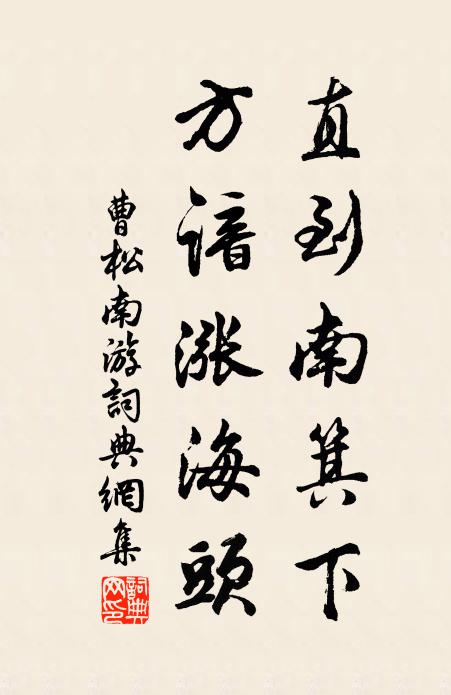 直到南箕下
方諳漲海頭
曹松南游詞典網集
詞典網印